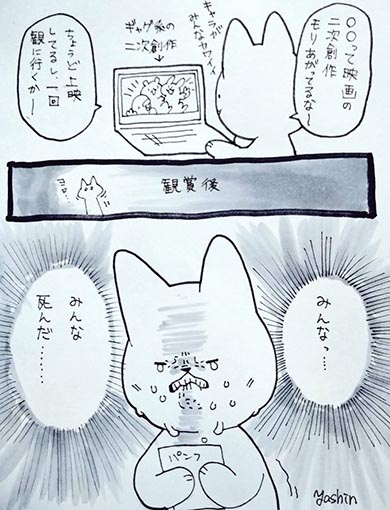 〇〇って映画の
二次創作
モリあがってるな〜
キャラが
みんなカワイイ
ギャグ系の
二次創作
ちょうど上映
してるし、一回
観に行くかー
観賞後
みんなっ…
みんな
死んだ……
パンフ
yashin